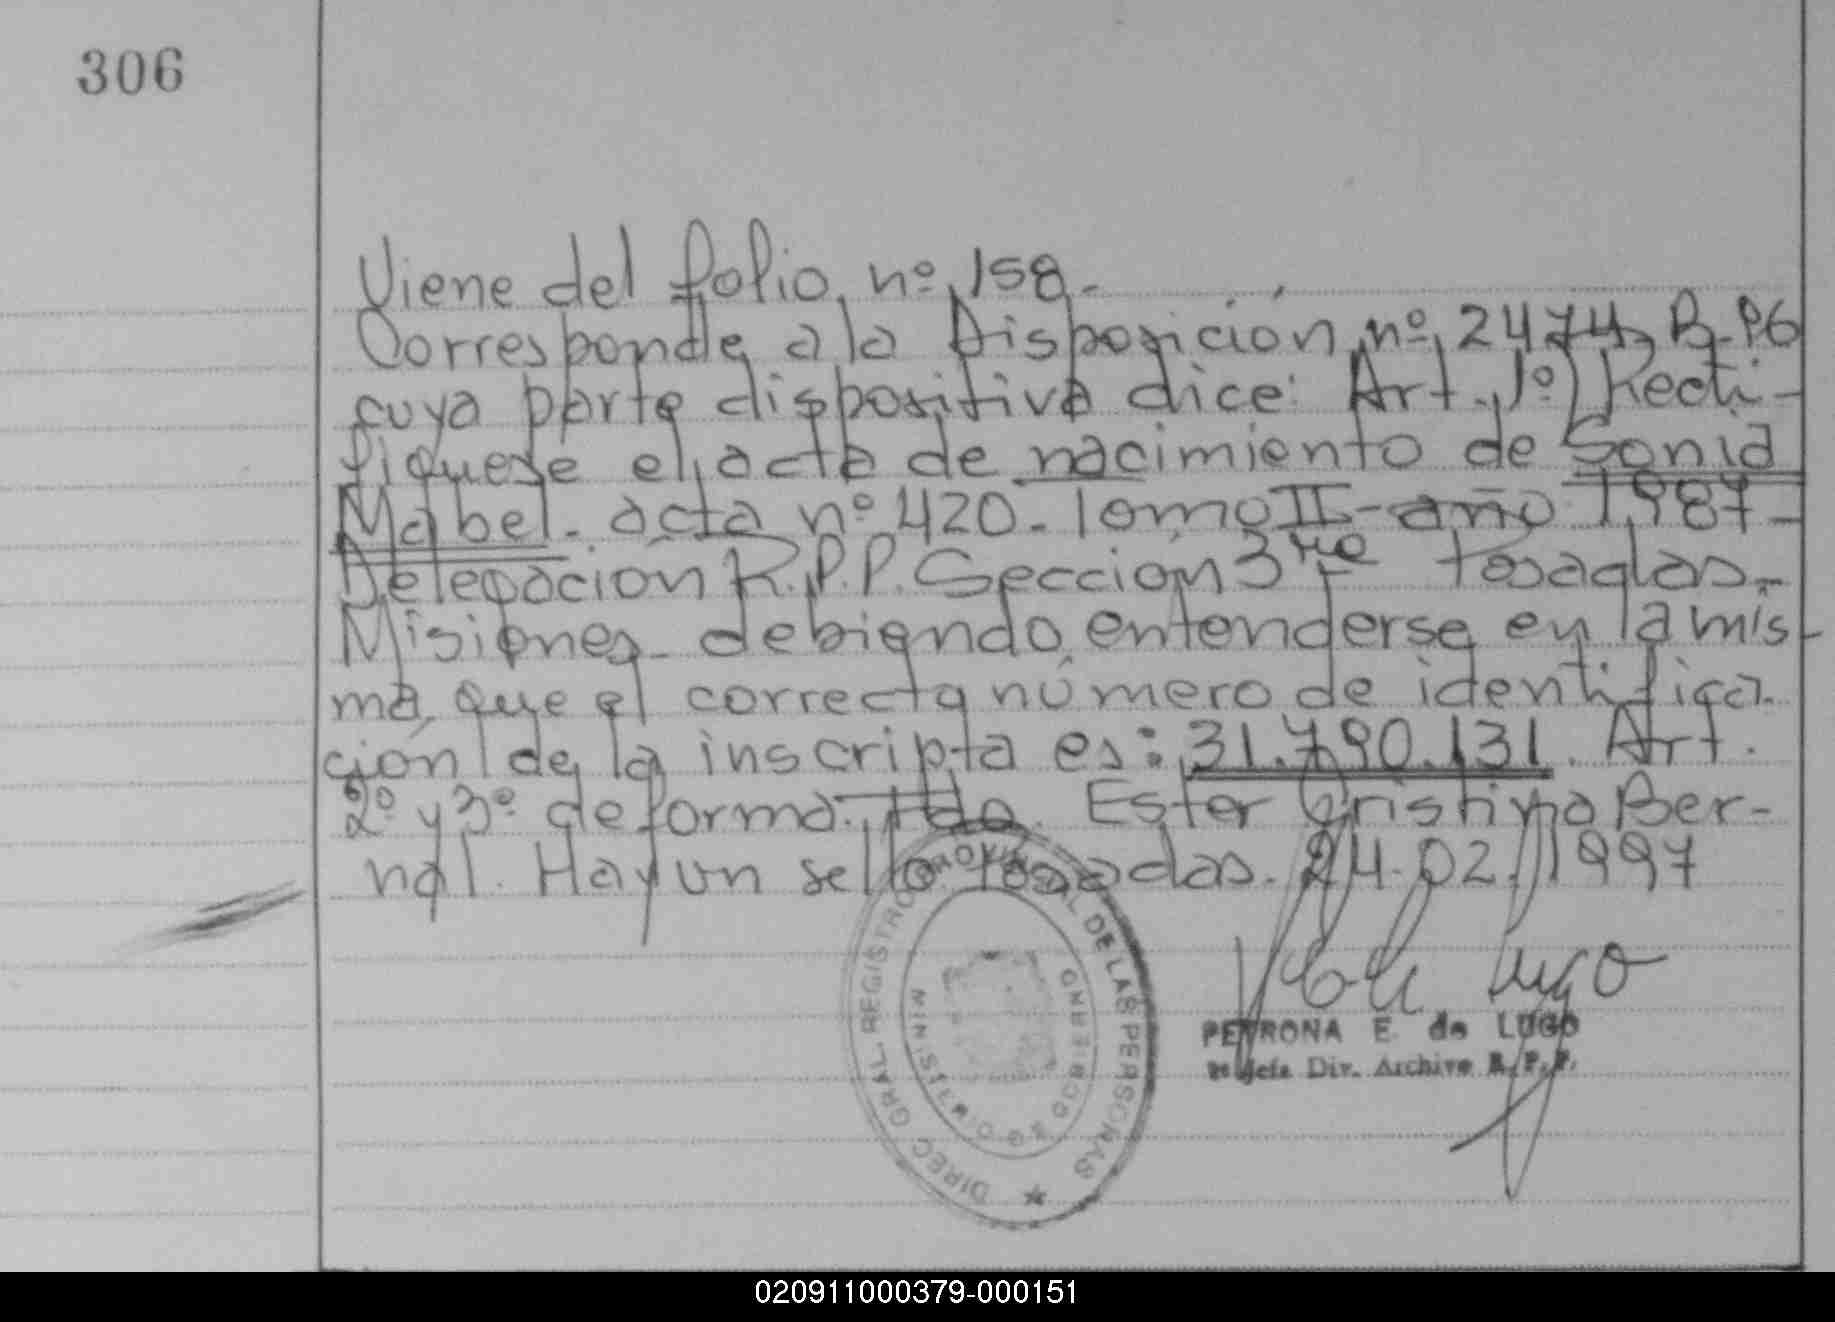 306
Viene del folio nº 158.-
Corresponde a la Disposición nº 2474, B-96
cuya parte dispositiva dice: Art. 1º) Recti-
fiquese el acta de nacimiento de Sonia
Mabel. acta nº 420. Tomo II- año 1987-
Delegación R.P.P. Sección 3ra Posadas.-
Misiones. debiendo entenderse en la mis-
ma, que el correcto número de identifica-
ción de la inscripta es: 31.790.131. Art.
2º y 3º de forma. Fdo. Ester Cristina Ber-
nal. Hay un sello. Posadas. 24.02.1997
DIREC GRAL. REGISTRO PROVINCIAL DE LAS PERSONAS
MINISTERIO DE GOBIERNO
Lugo
PETRONA E. de LUGO
Jefa Div. Archivo R.P.P.
020911000379-000151